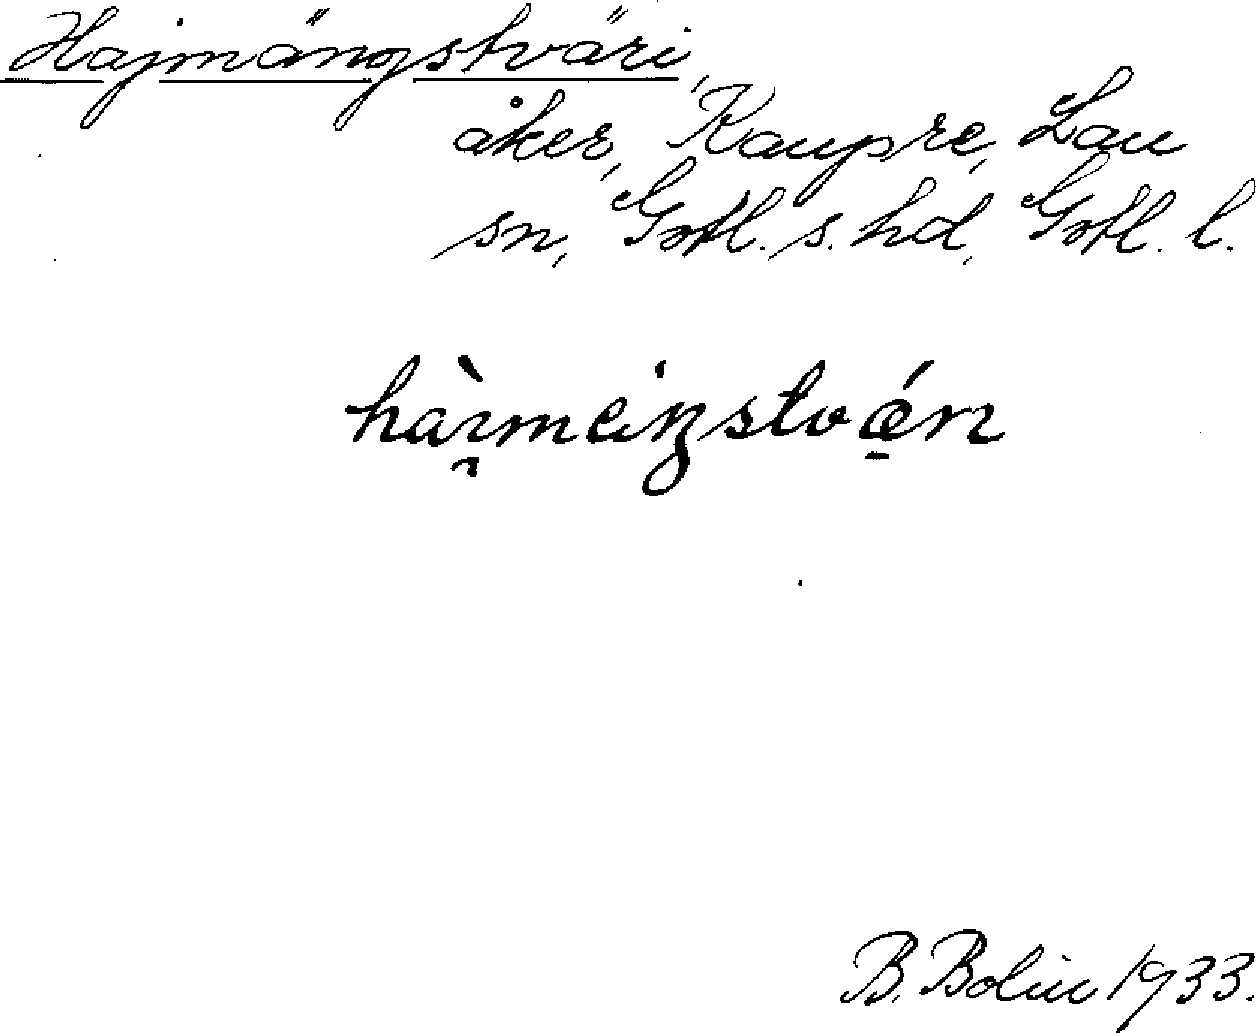 Hajmängstväri,
åker, Kaupre, Lau
sn, Gotl. s. hd, Gotl. l.
B. Bolin 1933.